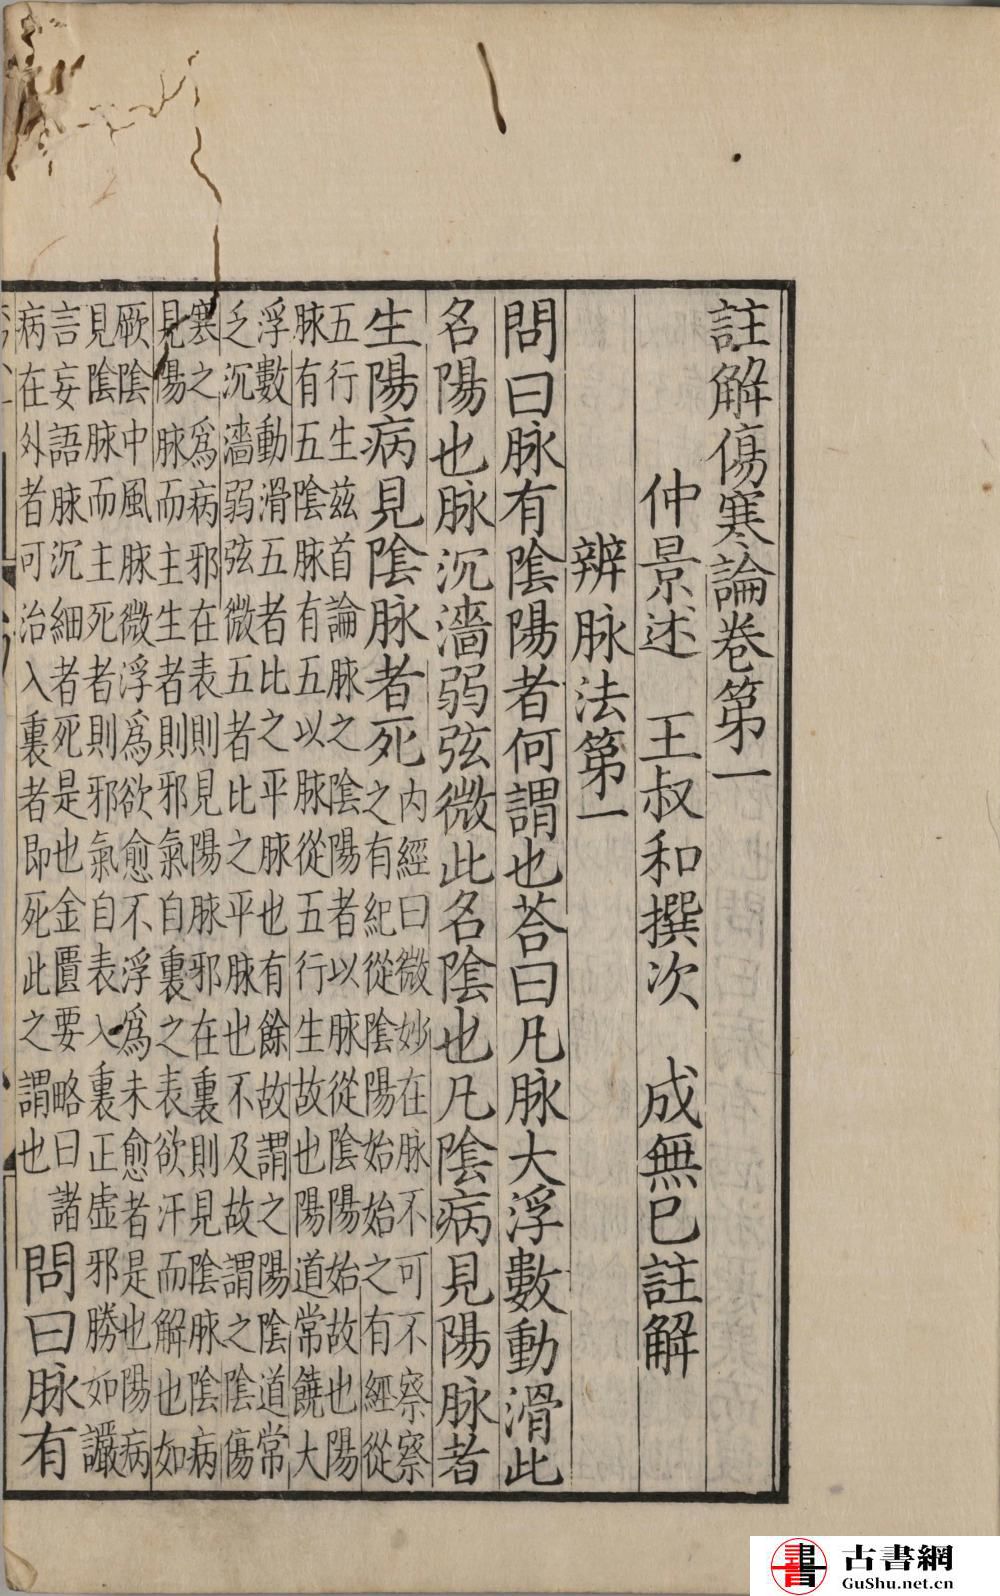 註解傷寒論卷第一
仲景述　王叔和撰次　成無已註解
辨脉法第一
問曰脉有陰陽者何謂也荅曰凡脉大浮數動滑此
名陽也脉沉濇弱弦微此名陰也凡陰病見陽脉者
生陽病見陰脉者死
内經曰微妙在脉不可不察察
之有紀從陰陽始始之有經從
五行生兹首論脉之陰陽者以脉從陰陽始故也陽
脉有五陰脉有五以脉從五行生故也陽道常饒大
浮數動滑五者比之平脉也有餘故謂之陽陰道常
乏沉濇弱弦微五者比之平脉也不及故謂之陰傷
寒之爲病邪在表則見陽脉邪在裏則見陰脉陰病
見陽脉而主生者則邪氣自裏之表欲汗而解也如
厥陰中風脉微浮爲欲愈不浮爲未愈者是也陽病
見陰脉而主死者則邪氣自表入裏正虛邪勝如讝
言妄語脉沉細者死是也金匱要略曰諸
病在外者可治入裏者即死此之謂也
問曰脉有
古書網
GuShu.net.cn